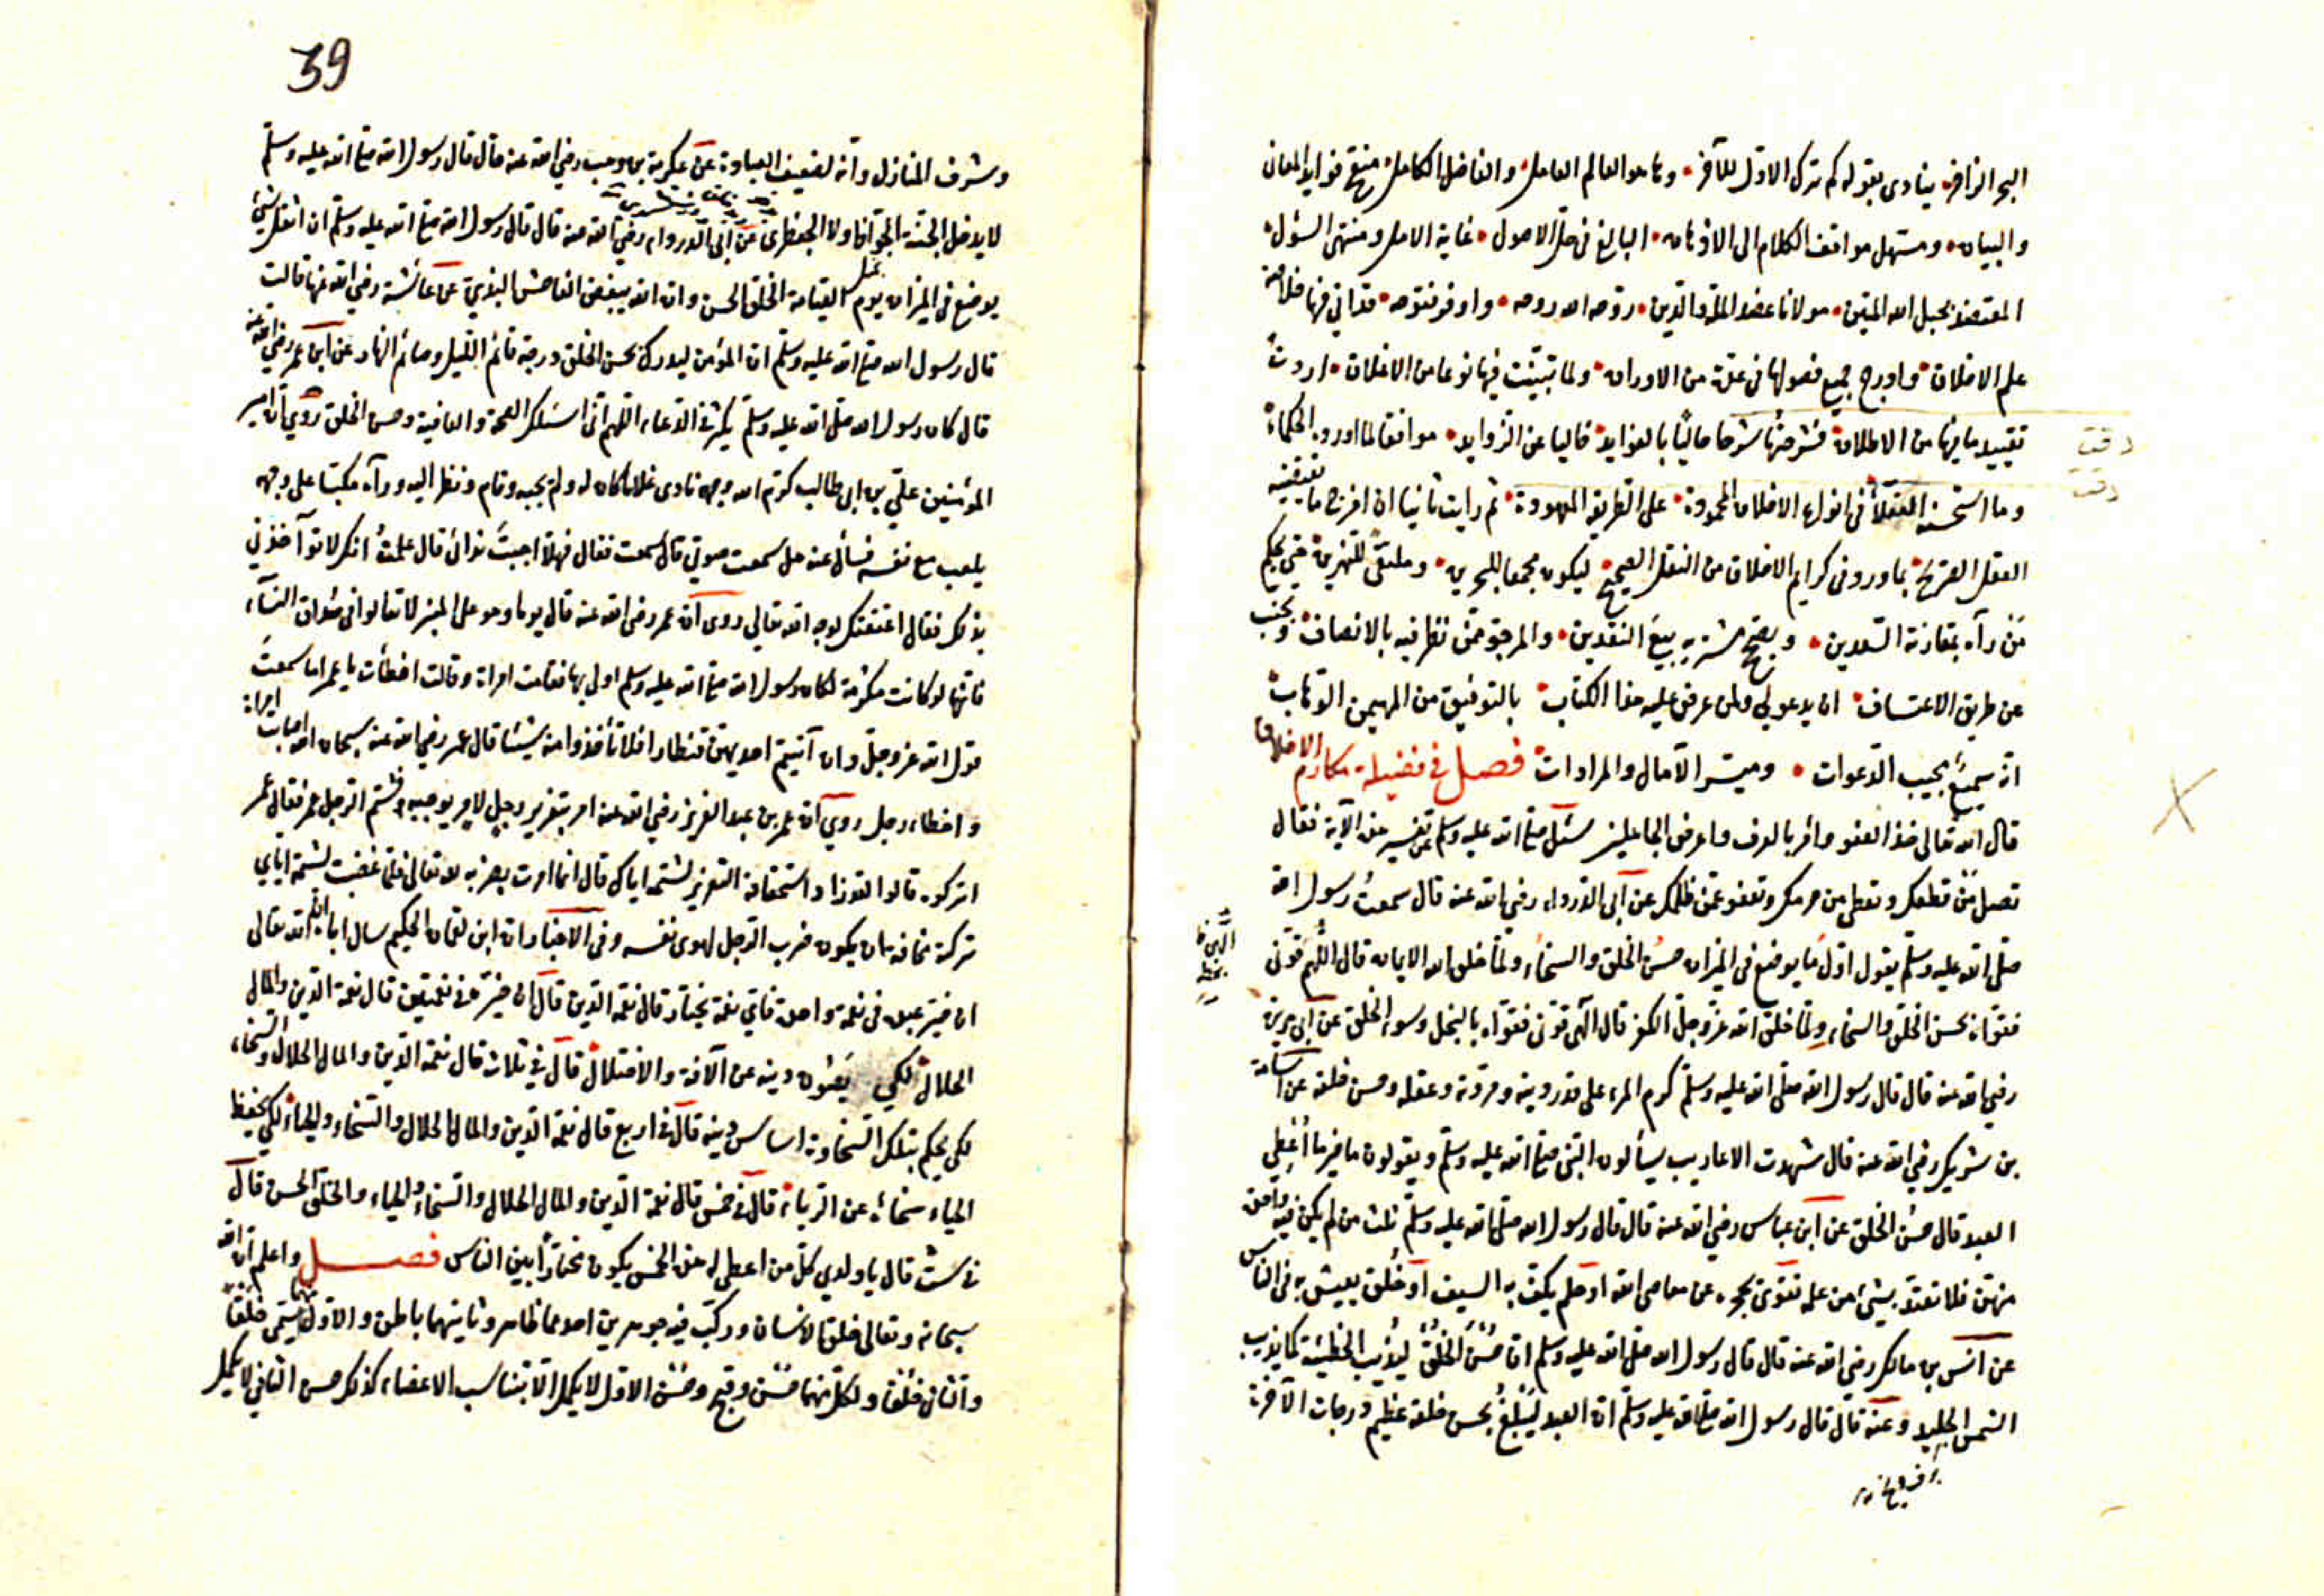 البحر الزاخر ينادى بقوله كم ترك الاول للآخر وها هو العالم العامل والفاضل الكامل منقح فوايد المعانى
والبيان ومستهل مواقف الكلام الى الاذهان البالغ فى حل الاصول غاية الامل ومنتهى السؤل
المعتضد بحبل الله المتين مولانا عضد الملة والدين روّح الله روحه واوفر فتوحه قد اتى فيها خلاصة
علم الاخلاق وادرج جميع فصولها فى عدّة من الاوراق ولما تبيّنت فيها نوعا من الاغلاق اردت
تقييد ما فيها من الاطلاق فشرحتها شرحا حاليًا بالفوايد خاليا عن الزوايد موافقا لما اورده الحكماء
وما استحسنه العقلاء فى انواع الاخلاق المحمودة على الطريقة المعهودة ثم رايت ثانيا ان امزج ما يقتضيه
العقل الصريح بما ورد فى كرايم الاخلاق من النقل الصحيح ليكون مجمعا للبحرين وملتقى للنهرين حتى يحكم
مَن رآه بمقارنة السعدين ويصحّ مشتريه بيع النقدين والمرجو ممن نظر فيه بالانصاف وتجنب
عن طريق الاعتساف ان يدعو لى ولمن عرض عليه هذا الكتاب بالتوفيق من المهيمن الوهاب
انه سميع يجيب الدعوات وميسّر الآمال والمرادات فصل فى فضيلة مكارم الاخلاق
قال الله تعالى خذ العفو وأمر بالعرف واعرض الجاعلين سئل صلى الله عليه وسلم عن تفسير هذه الآية فقال
تصل من قطعك وتعطى من حرمك وتعفو عمّن ظلمك عن ابى الدرداء رضى الله عنه قال سمعت رسول الله
صلى الله عليه وسلم يقول اوّل ما يوضع فى الميزان حسن الخلق والسخاء ولمّا خلق الله الايمان قال اللهم قوّنى
فقوّاه بحسن الخلق والسخاء ولمّا خلق الله عزّ وجلّ الكفر قال الٓهى قوّنى فقواه بالبخل وسوء الخلق عن ابى هريرة
رضى الله عنه قال قال رسول الله صلى الله عليه وسلم كرم المرء على قدر دينه ومروّته وعقله وحسن خلقه عن اسامة
بن شريك رضى الله عنه قال شهدت الاعاريب يسألون النبى صلى الله عليه وسلم ويقولون ما خير ما أعطى
العبد قال حسن الخلق عن ابن عباس رضى الله عنه قال قال رسول الله صلى الله عليه وسلم ثلث من لم يكن فيه واحدة
منهنّ فلا تعتدّ بشئ من عمله تقوى تحجره عن معاصى الله او حلم يكفّ به السيف او خلق يعيش به فى الناس
عن انس بن مالك رضى الله عنه قال قال رسول الله صلى الله عليه وسلم انّ حسن الخلق ليذيب الخطيئة كما يذيب
الشمس الجليد وعنه قال قال رسول الله صلى الله عليه وسلم ان العبد ليبلغ بحسن خلقه عظيم درجات الآخرة
39
وشرف المنازل وانه لضعيف العبادة عن عكرمة بن وهب رضى الله عنه قال قال رسول الله صلى الله عليه وسلم
لا يدخل الجنة الجوّاظ ولا الجعظرى عن ابى الدرداء رضى الله عنه قال قال رسول الله صلى الله عليه وسلم ان اثقل شئ
يوضع فى الميزان يوم القيامة الخلق الحسن وان الله يبغض الفاحش البذىّ عن عائشة رضى الله عنها قالت
قال رسول الله صلى الله عليه وسلم ان المؤمن ليدرك بحسن الخلق درجة قائم الليل وصائم النهار عن ابن عمر رضى الله عنه
قال كان رسول الله صلى الله عليه وسلم يكثر فى الدعاء اللهم انى اسئلك الصحة والعافية وحسن الخلق روى ان امير
المؤمنين على بن ابى طالب كرّم الله وجهه نادى غلاما كان له ولم يجبه وقام ونظر اليه ورآه مكبّا على وجهه
يلعب مع نفسه فسأل عنه هل سمعت صوتى قال سمعت فقال فهلّا اجبتَ ندائى قال علمت انك لا تؤآخذنى
بذلك فقال اعتقتك لوجه الله تعالى روى ان عمر رضى الله عنه قال يوما وهو على المنبر لا تغالوا فى صداق النساء
فانها لو كانت مكرمة لكان رسول الله صلى الله عليه وسلم اولى بها فقامت امراة وقالت اخطأت يا عمر اما سمعت
قول الله عزّ وجلّ وان آتيتم احديهنّ قنطارا فلا تأخذوا منه شيئا قال عمر رضى الله عنه سبحان الله اصابت امراة
واخطاء رجل روى ان عمر بن عبد العزيز رضى الله عنه امر بتعزير رجل لامر يوجبه فشتم الرجل عمر فقال عمر
اتركوه قالوا لقد زاد استحقاقه التعزير لشتمه اياك قال انما امرت بضربه لله تعالى فلمّا غضبت لشتمه اياى
تركته مخافة ان يكون ضرب الرجل لهوى نفسه وفى الاخبار ان ابن لقمان الحكيم سال اباه الله تعالى
ان خيّر عبده فى نعمة واحدة فاىّ نعمة يختار قال نعمة الدين قال ان خيّره فى نعمتين قال نعمة الدين والمال
الحلال لكى يصون دينه عن الآفة والاختلال قال فى ثلاث قال نعمة الدين والمال الحلال والسخاء
لكى يحكم بتلك السخاوة اساس دينه قال فى اربع قال نعمة الدين والمال الحلال والسخاء والحياء لكى يحفظ
الحياء سخاءه عن الرياء قال فى خمس قال نعمة الدين والمال الحلال والسخاء والحياء والخلق الحسن قال
فى ستّ قال يا ولدى كلّ من اعطى له هذه الخمس يكون مختارًا بين الناس فصل واعلم ان الله
سبحانه وتعالى خلق الانسان وركّب فيه جوهرين احدهما ظاهر وثانيهما باطن والاول منهما يسمى خَلقًا
والثانى خُلُقا ولكل منهما حسن وقبح وحسن الاول لا يكمل الا بتناسب الاعضاء كذلك حسن الثانى لا يكمل